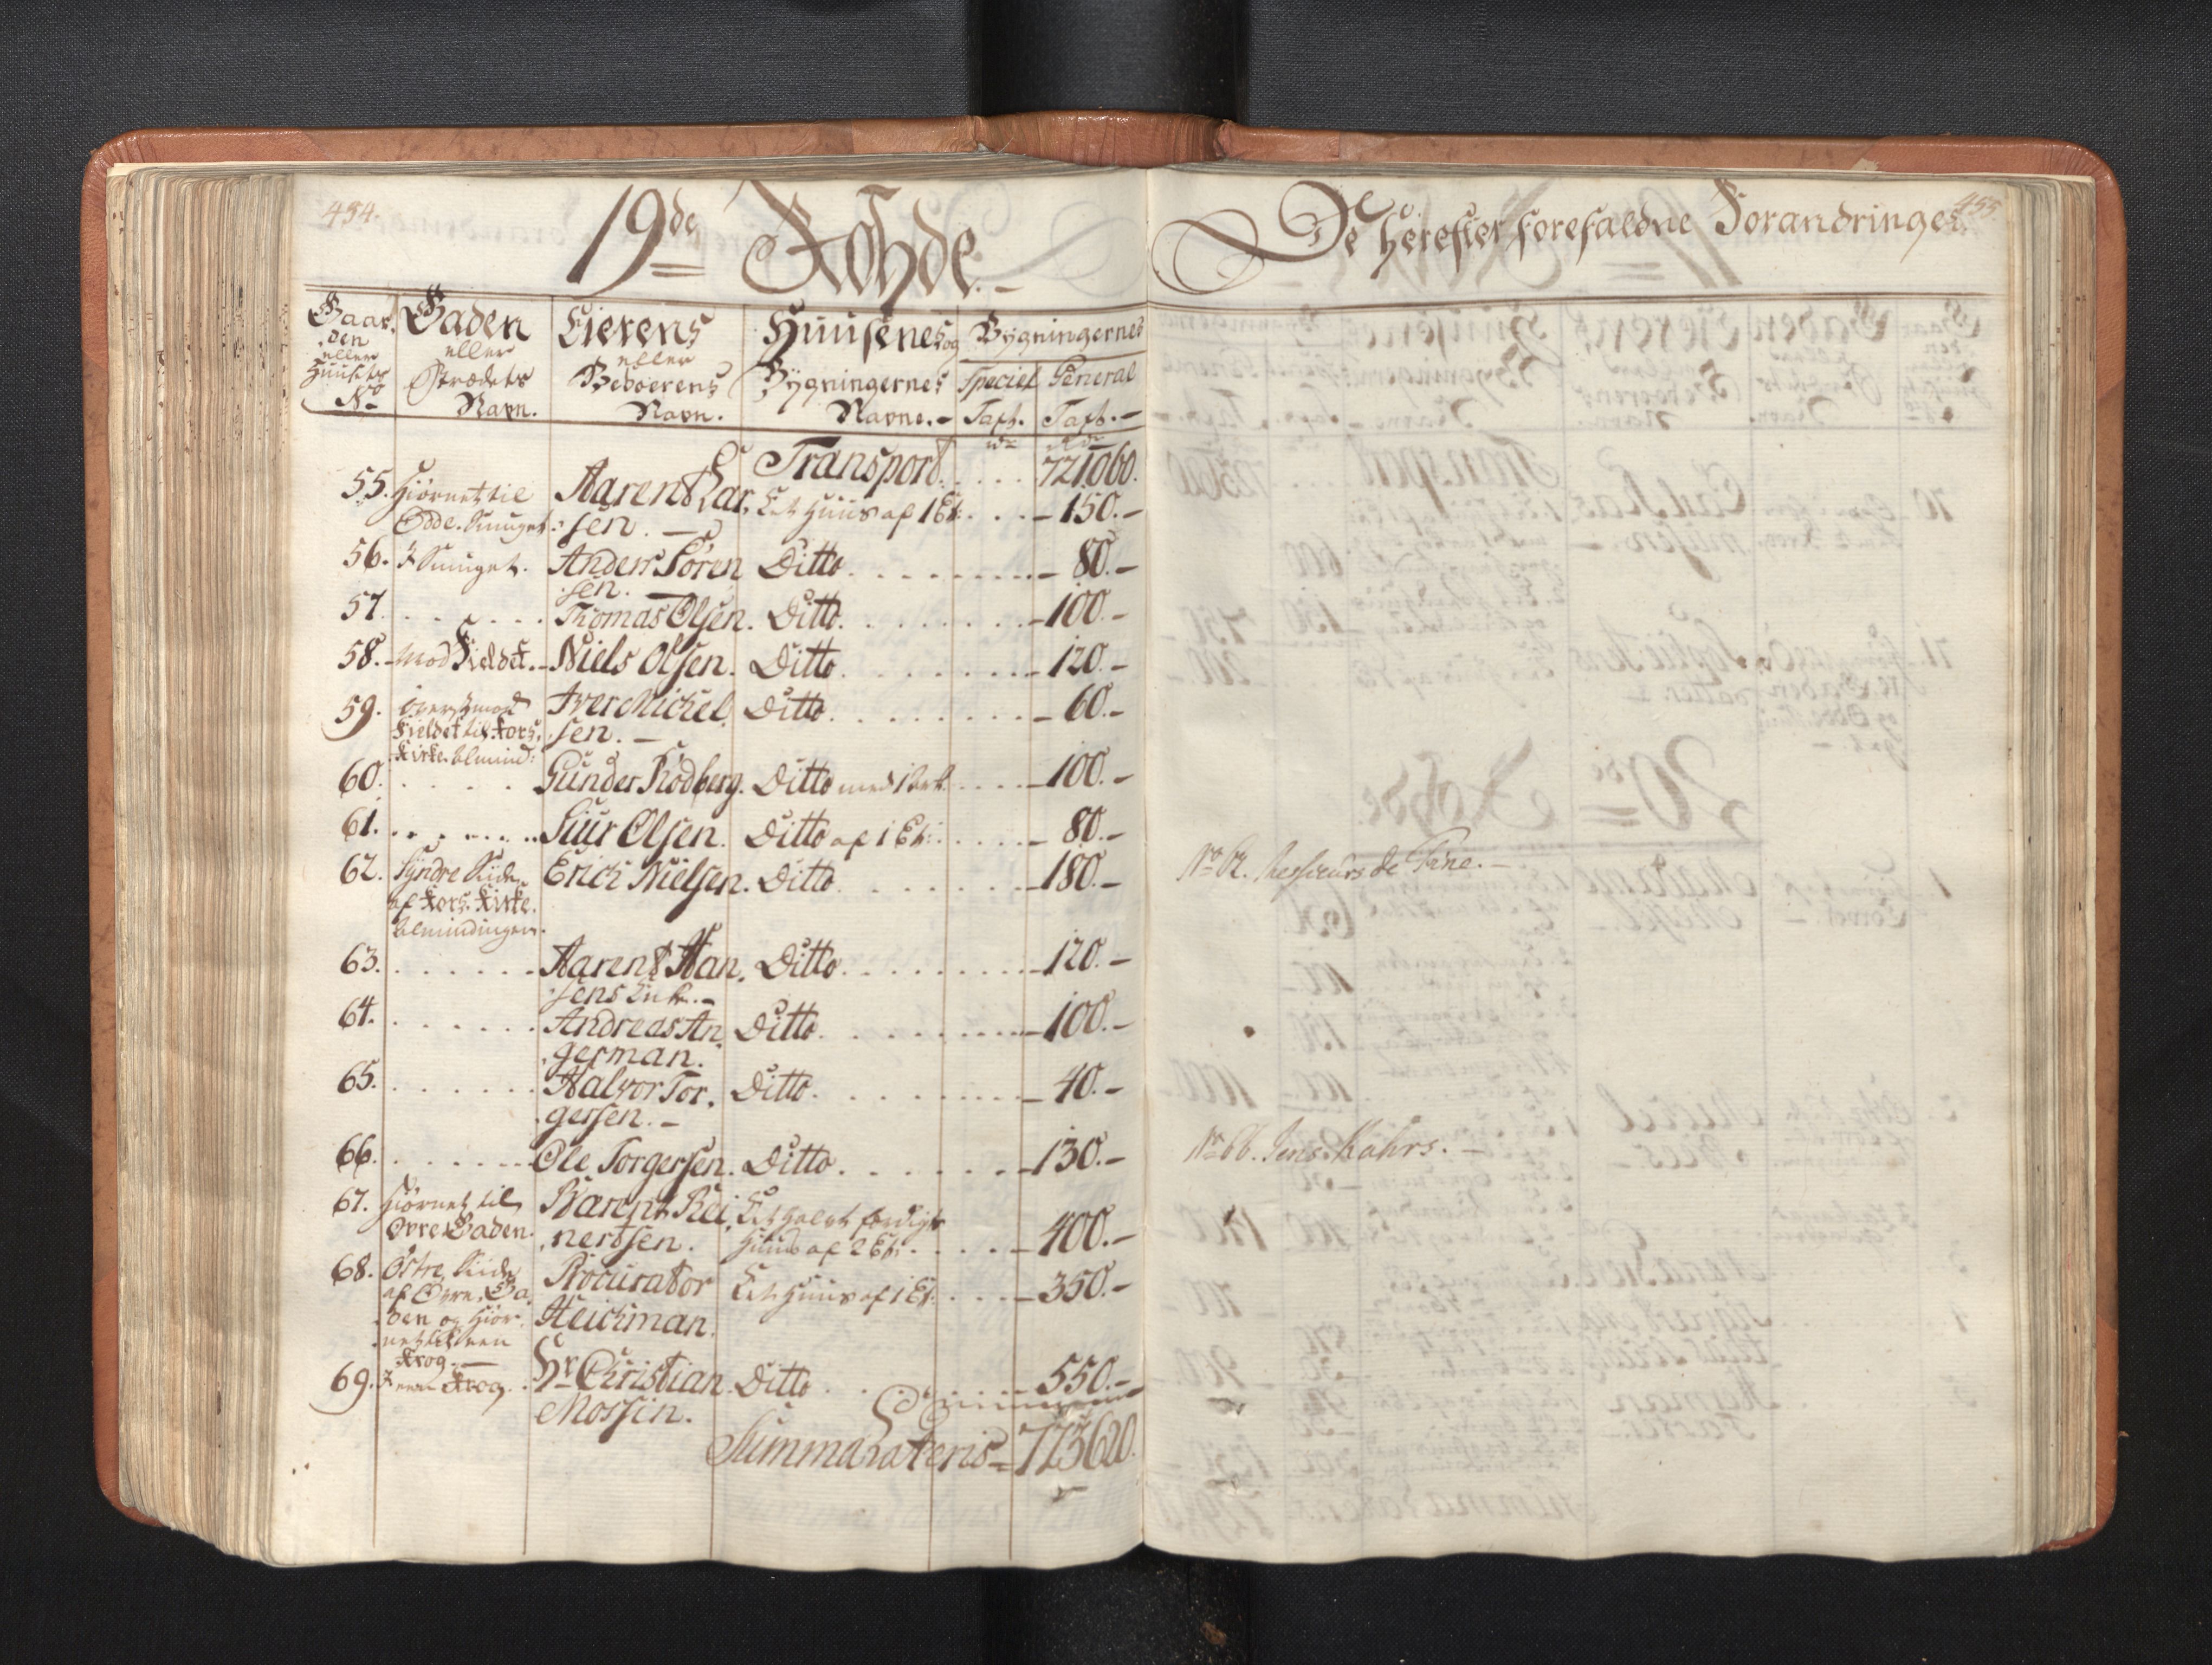 454.
19de Rohde.
Gaardens eller Huusets No
Gaden eller Strædets Navn.
Eierens eller Beboerens Navn.
Huusenes og Bygningernes Navne.
Bygningernes
Speciel Taxt. General Taxt.
Transport. 721060.
55. Hiørnet til Aarent Lar, Et Huus af 1 Et: 150.
Odde. Smuget: sen.
56. I Smuget. Anders Sören Ditto 80.
sen.
57. Thomas Olsen. Ditto. 100.
58. Mod Fieldet. Niels Olsen. Ditto 120.
59. Iver Michel, Ditto 60.
Fieldet til Kors, sen.
Kirke Almind:
60. Gunder Rödberg. Ditto 100.
61. Siur Olsen. Ditto af 1 Et: 80.
62. Syndre Side Erich Nielsen. Ditto 180.
af Kors. Kirke.
Almindingen.
63. Aarent Han, Ditto 120.
sens Enke.
64. Andreas An, Ditto 100.
german.
65. Halvor Tor, Ditto. 40.
gersen.
66. Ole Torgersen. Ditto. 130.
67. Hiørnet til Barent Rei, Et halvt færdigt
Øvre Gaden. nertsen. Huus af 2 Et: 400.
68. Østre Side Procurator Et Huus af 1 Et: 350.
af Øvre Ga, Heichman.
den og Hiør,
net til een
Krog.
69. I een Krog. Hr Christian Ditto 550.
Mossin.
Summa Lateris 723620.
455.
De herefter forefaldne Forandringer.
No 62. Messieurs de Fine.
No 66. Jens Kahrs.